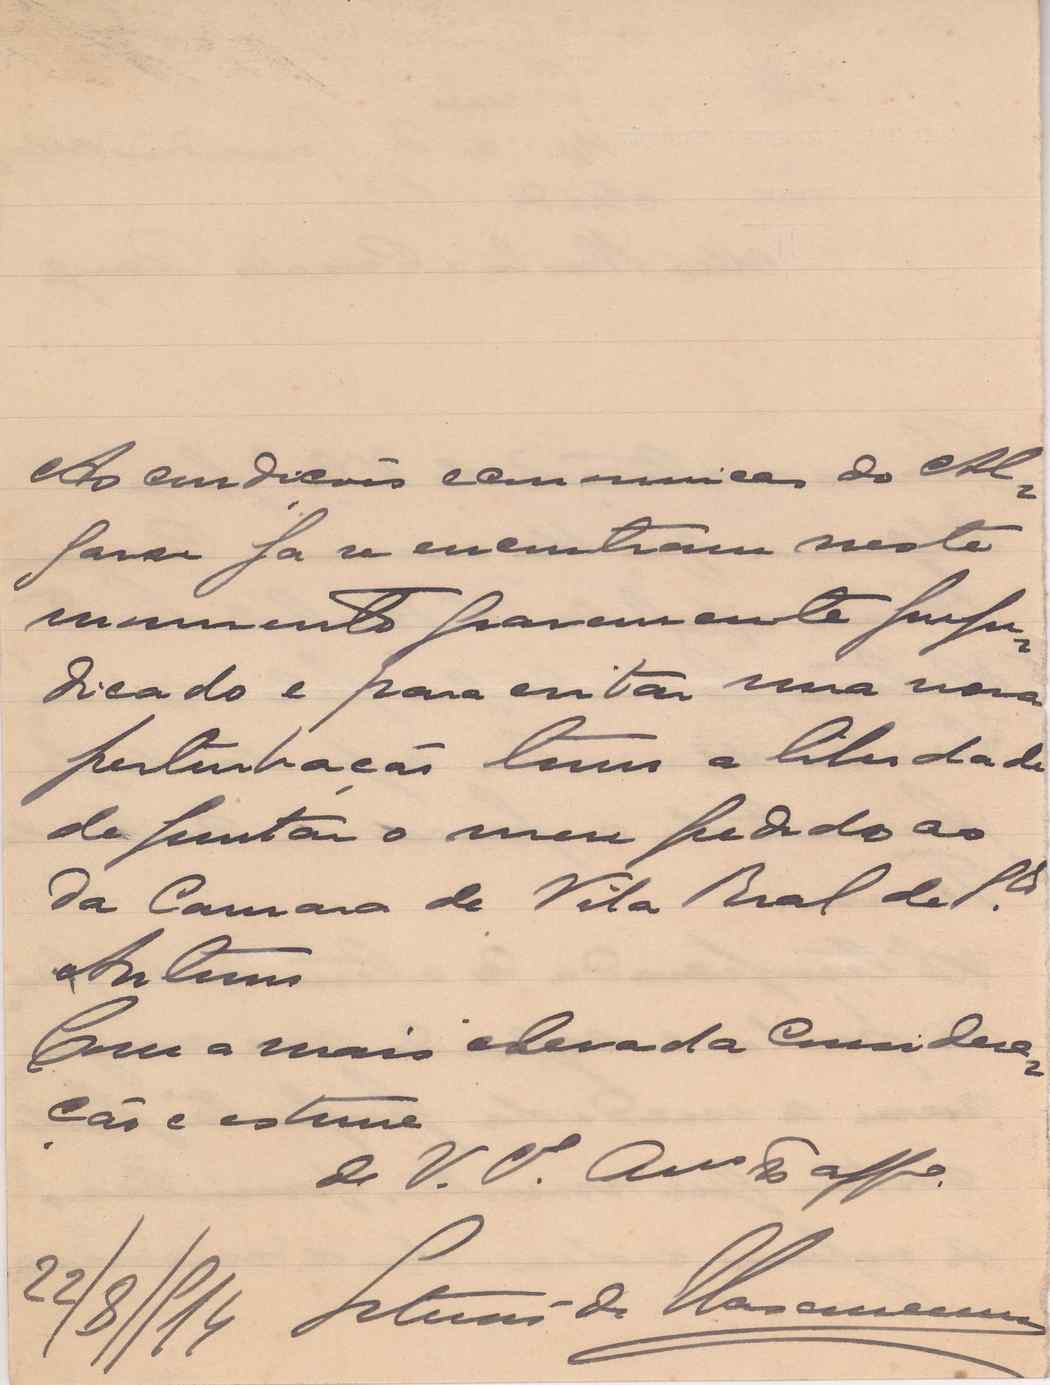 As condições economicas do Al-
garve ja se encontram neste
momento gravemente preju-
dicado e para evitar uma nova
perturbação tomo a liberdade
de juntar o meu pedido ao
da Camara de Vila Real de S.to
Antonio
Com a mais elevada considera-
ção e estima
de V. Ex.
22/8/914